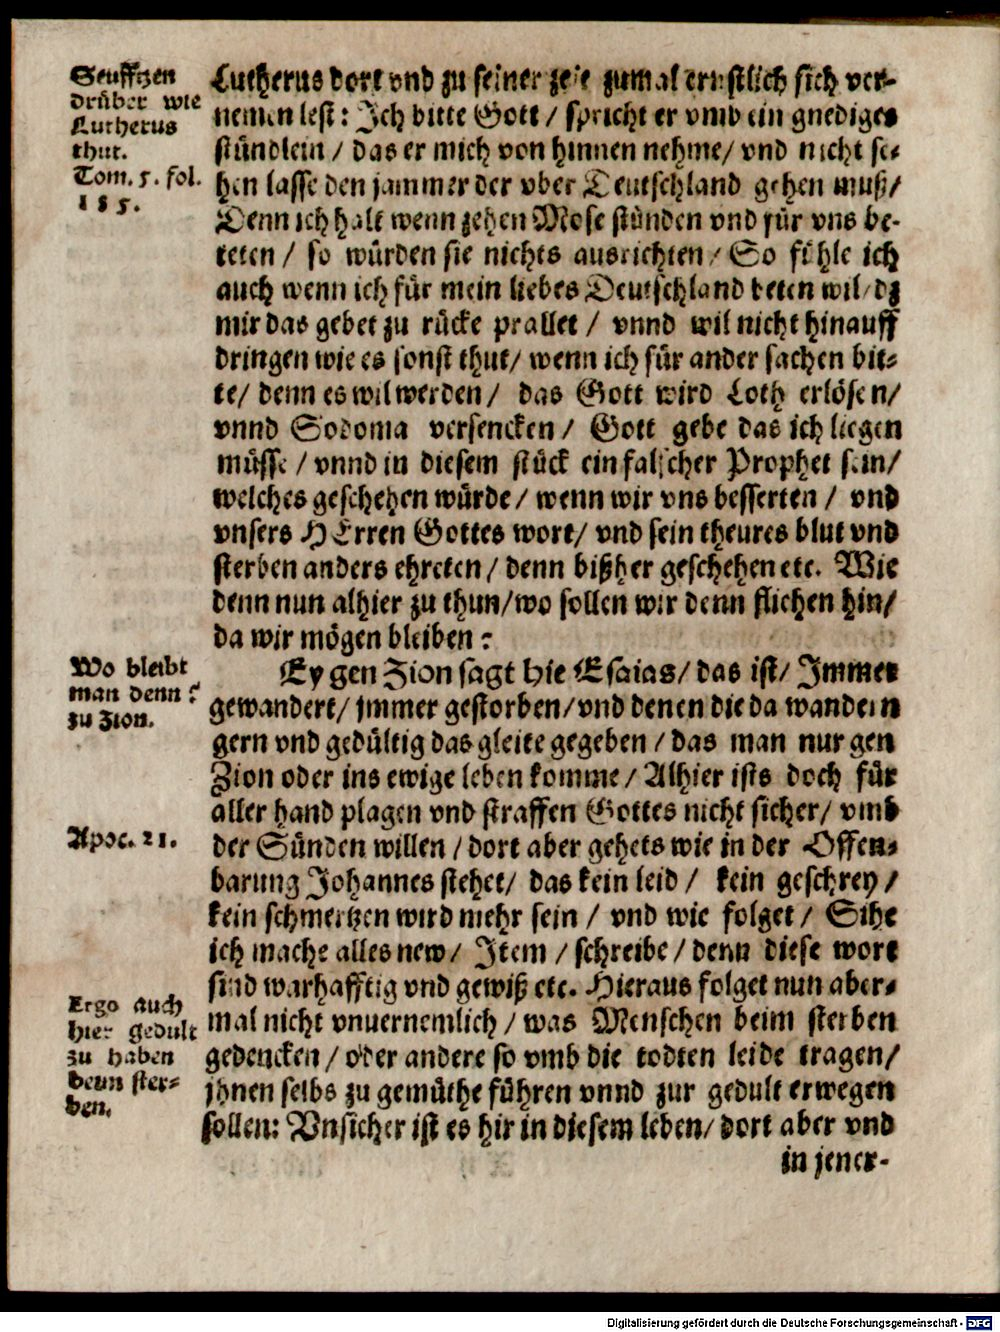 Seufftzen
drüber wie
Lutherus
thut.
Tom. 5. fol.
185.
Lutherus dort vnd zu seiner zeit zumal ernstlich sich ver-
nemen lest: Ich bitte Gott / spricht er vmb ein gnediges
stündlein / das er mich von hinnen nehme / vnd nicht se-
hen lasse den jammer der vber Deutschland gehen muß /
Denn ich halt wenn zehen Mose stünden vnd für vns be-
teten / so würden sie nichts ausrichten / So fühle ich
auch wenn ich für mein liebes Deutschland beten wil / dz
mir das gebet zu rücke prallet / vnnd wil nicht hinauff
dringen wie es sonst thut / wenn ich für ander sachen bit-
te / denn es wil werden / das Gott wird Loth erlösen /
vnnd Sodoma versencken / Gott gebe das ich liegen
müsse / vnnd in diesem stück ein falscher Prophet sein /
welches geschehen würde / wenn wir vns besserten / vnd
vnsers HErren Gottes wort / vnd sein theures blut vnd
sterben anders ehreten / denn bißher geschehen etc. Wie
denn nun alhier zu thun / wo sollen wir denn fliehen hin /
da wir mögen bleiben?
Wo bleibt
man denn?
zu Zion.
Ey gen Zion sagt hie Esaias / das ist / Immer
gewandert / jmmer gestorben / vnd denen die da wandern
gern vnd gedültig das gleite gegeben / das man nur gen
Zion oder ins ewige leben komme / Alhier ists doch für
aller hand plagen vnd straffen Gottes nicht sicher / vmb
Apoc. 21.
der Sünden willen / dort aber gehets wie in der Offen-
barung Johannes stehet / das kein leid / kein geschrey /
kein schmertzen wird mehr sein / vnd wie folget / Sihe
ich mache alles new / Item / schreibe / denn diese wort
sind warhafftig vnd gewiß etc. Hieraus folget nun aber-
Ergo auch
hier gedult
zu haben
beim ster-
ben.
mal nicht vnuernemlich / was Menschen beim sterben
gedencken / oder andere so vmb die todten leide tragen /
jhnen selbs zu gemüthe führen vnnd zur gedult erwegen
sollen: Vnsicher ist es hir in diesem leben / dort aber vnd
in jener-
Digitalisierung gefördert durch die Deutsche Forschungsgemeinschaft - DFG